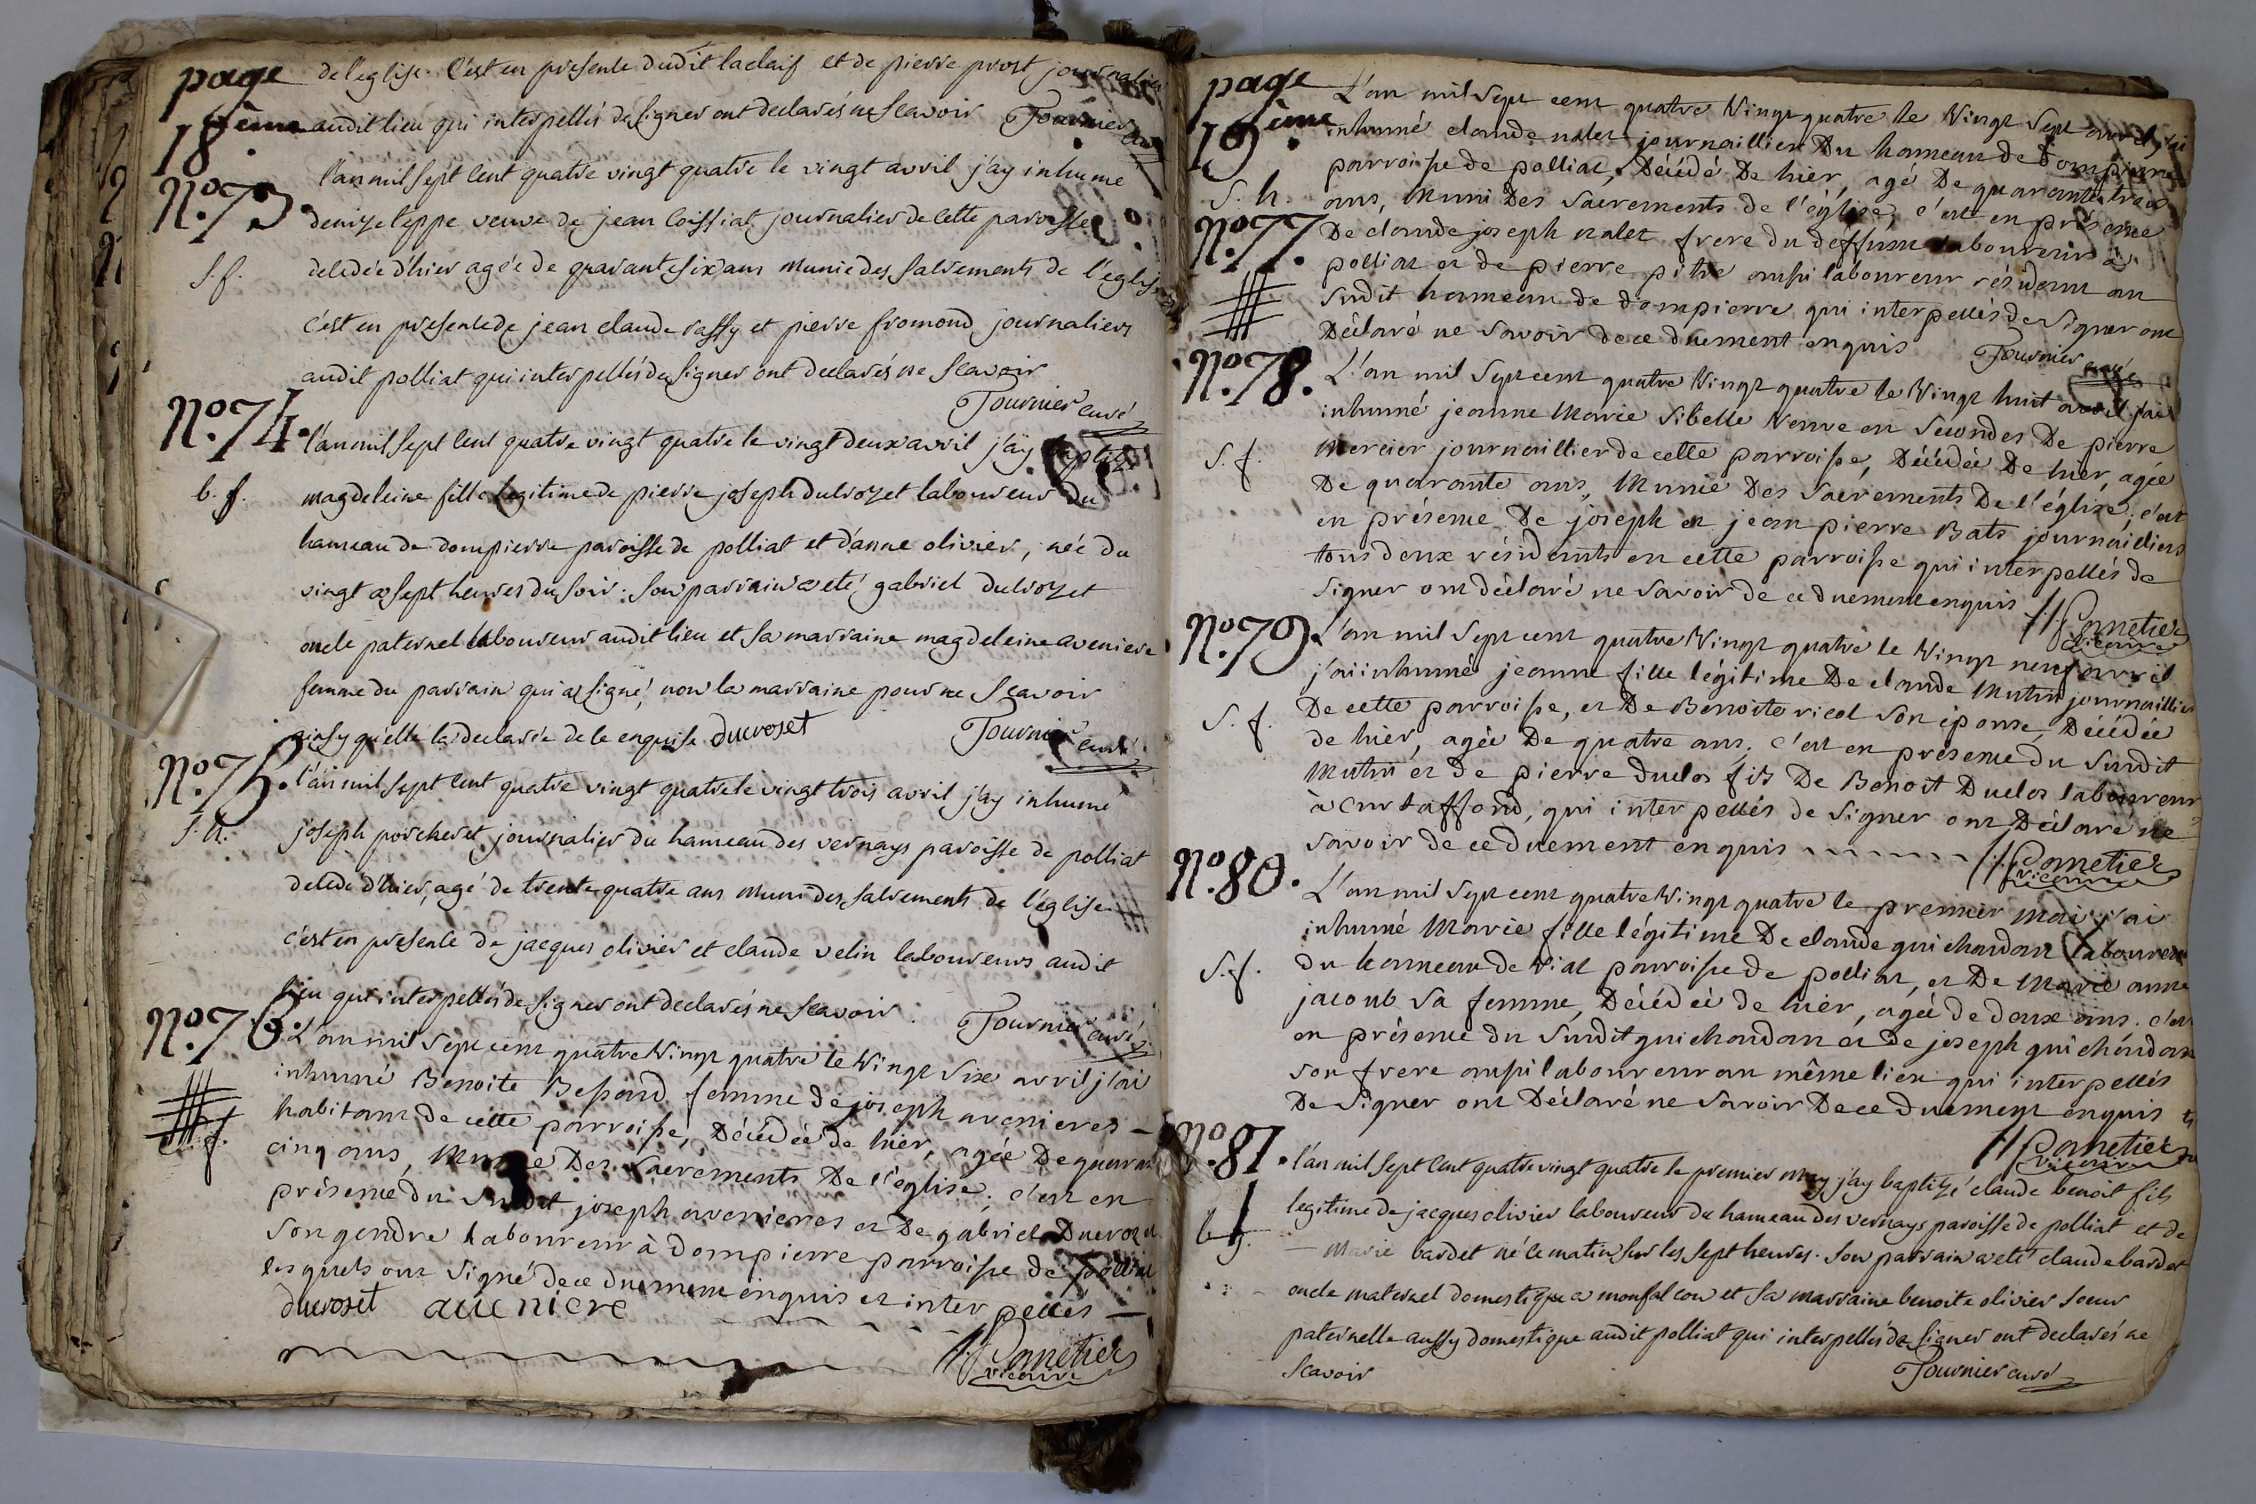 page
18ème
de l'eglise. C'est en presence dudit laclaif et de pierre prost journalier
audit lieu qui interpellés de signer ont declarés ne scavoir Tournier curé
N.º 73.
l'an mil sept cent quatre vingt quatre le vingt avril j'ay inhumé
denize leppe veuve de jean Coissiat journalier de cette paroisse
s. f.
decedée d'hier agée de quarante six ans munie des sacrements de l'eglise
c'est en presence de jean claude raffy et pierre fromond journaliers
audit polliat qui interpellés de signer ont declarés ne scavoir
Tournier curé
N.º 74.
l'an mil sept cent quatre vingt quatre le vingt deux avril j'ay
b. f.
magdeleine fille legitime de pierre joseph ducrozet laboureur du
hameau de dompierre paroisse de polliat et d'anne olivier, née du
vingt a sept heures du soir. son parrain a eté gabriel ducrozet
oncle paternel laboureur audit lieu et sa marraine magdeleine aveniere
femme du parrain qui a signé, non la marraine pour ne scavoir
ainsy qu'elle la declarée de ce enquise ducroset Tournier curé
N.º 75.
l'an mil sept cent quatre vingt quatre le vingt trois avril j'ay inhumé
s. h.
joseph porcheret journalier du hameau des vernays paroisse de polliat
decedé d'hier, agé de trente quatre ans muni des sacrements de l'église
c'est en presence de jacques olivier et claude velin laboureurs audit
lieu qui interpellés de signer ont declarés ne scavoir. Tournier curé
N.º 76.
L'an mil sept cent quatre Vingt quatre le Vingt Six avril j'ai
inhumé Benoite Bessard femme de joseph avenieres -
s. f.
habitant de cette parroisse, Décédée de hier, agée De quarante
cinq ans, Munie Des Sacrements De l'église; c'est en
présence du Susdit joseph avenieres et De gabriel Ducrozet
Son gendre Laboureur à Dompierre parroisse de polliat
lesquels ont Signé de ce duement enquis et interpellés -
ducroset aúe niere
Cometier
vicaire
page
19ème
L'an mil Sept cent quatre Vingt quatre le Vingt Sept avril j'ai
inhumé claude nalet journaillier Du hameau de Dompierre
parroisse de polliat, Décédé De hier, agé De quarante trois
s. h.
ans, Muni Des Sacrements de l'église, c'est en présence
N.º 77.
De claude joseph nalet frere du deffunt Laboureur à
polliat et de pierre pitre aussi laboureur résidant au
Susdit hameau de dompierre qui interpellés de Signer ont
Déclaré ne Savoir de ce duement enquis Tournier curé
N.º 78.
L'an mil Sept cent quatre Vingt quatre le Vingt huit avril j'ai
inhumé jeanne Marie Sibelle Veuve en Secondes De pierre
s. f.
Mercier journaillier de cette parroisse, Décédée De hier, agée
De quarante ans, Munie Des Sacrements De l'église; c'est
en présence De joseph et jean pierre Bats journailliers
tous deux résidants en cette parroisse qui interpellés de
Signer ont déclaré ne Savoir de ce duement enquis
Cometier
vicaire
N.º 79.
L'an mil Sept cent quatre Vingt quatre le Vingt neuf avril
j'ai inhumé jeanne fille légitime De claude Mutin journaillier
s. f.
De cette parroisse, et De Benoite ricol Son épouse, Décédée
de hier, agée De quatre ans. c'est en présence du Susdit
Mutin et de pierre Duclos fils De Benoit Duclos laboureur
à Curtaffond, qui interpellés de Signer ont Déclaré ne
Savoir de ce duement enquis Cometier
vicaire
N.º 80.
L'an mil Sept cent quatre Vingt quatre le premier Mai j'ai
inhumé Marie fille légitime De claude guichardan Laboureur
s. f.
du hameau de Vial parroisse de polliat, et De Marie anne
jacoub Sa femme, Décédée de hier, agée de deux ans. c'est
en présence du Susdit guichandan et de joseph guichandan
son frere aussi laboureur au même lieu qui interpellés
De Signer ont Déclaré ne Savoir De ce duement enquis
Cometier
vicaire
N.º 81.
l'an mil sept cent quatre vingt quatre le premier may j'ay baptizé claude benoit fils
legitime de jacques olivier laboureur du hameau des vernays paroisse de polliat et de
b. g.
- Marie bardet né ce matin sur les sept heures. son parrain a eté claude bardet
oncle maternel domestique a monfalcon et sa marraine benoite olivier soeur
paternelle aussy domestique audit polliat qui interpellés de signer ont declarés ne
scavoir Tournier curé